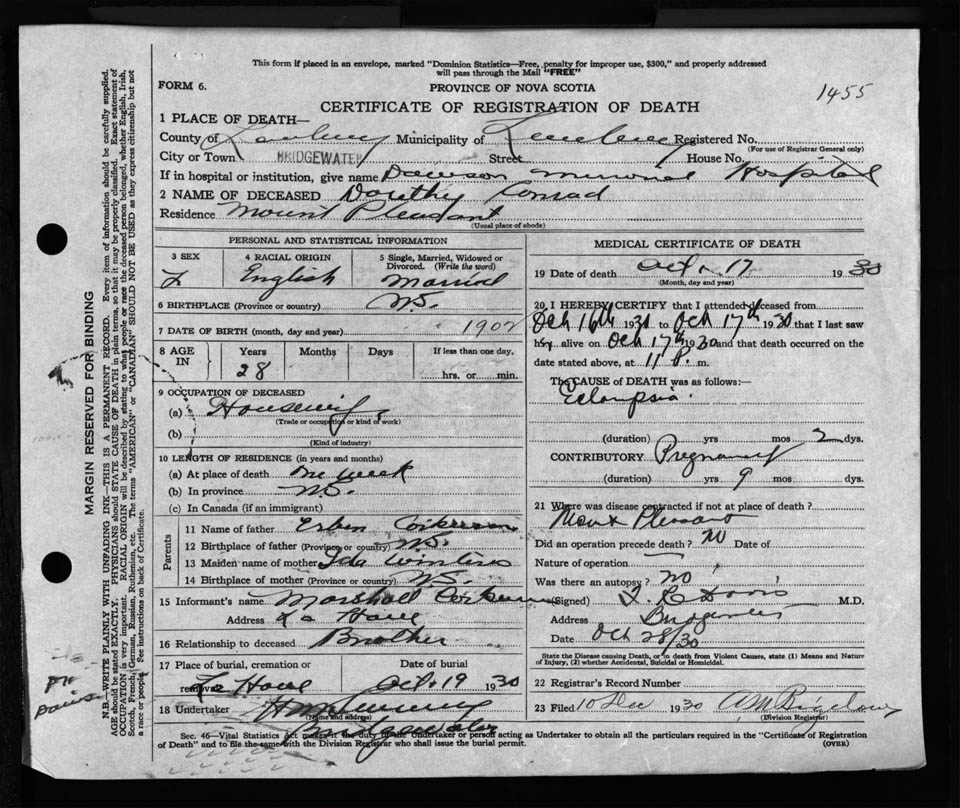 This form if placed in an envelope, marked "Dominion Statistics—Free, penalty for improper use, $300," and properly addressed
will pass through the Mail "FREE"
FORM 6.
PROVINCE OF NOVA SCOTIA
1455
CERTIFICATE OF REGISTRATION OF DEATH
1 PLACE OF DEATH—
County of Lunenburg Municipality of Lunenburg Registered No.
(For use of Registrar General only)
City or Town BRIDGEWATER Street House No.
If in hospital or institution, give name Dawson Memorial Hospital
2 NAME OF DECEASED Dorothy Conrad
Residence Mount Pleasant
(Usual place of abode)
PERSONAL AND STATISTICAL INFORMATION
3 SEX 4 RACIAL ORIGIN 5 Single, Married, Widowed or Divorced. (Write the word)
F English Married
6 BIRTHPLACE (Province or country) N.S.
7 DATE OF BIRTH (month, day and year) 1902
8 AGE IN Years Months Days If less than one day,
28 hrs. or min.
9 OCCUPATION OF DECEASED
(a) Housewife
(Trade or occupation or kind of work)
(b)
(Kind of industry)
10 LENGTH OF RESIDENCE (in years and months)
(a) At place of death One week
(b) In province N.S.
(c) In Canada (if an immigrant)
Parents
11 Name of father Erben Corkum
12 Birthplace of father (Province or country) N.S.
13 Maiden name of mother Ida Winters
14 Birthplace of mother (Province or country) N.S.
15 Informant's name Marshall Corkum
Address La Have
16 Relationship to deceased Brother
17 Place of burial, cremation or removal Date of burial
La Have Oct. 19 1930
18 Undertaker
(Name and address)
Bridgewater
MEDICAL CERTIFICATE OF DEATH
19 Date of death Oct 17 1930
(Month, day and year)
20 I HEREBY CERTIFY that I attended deceased from
Oct 16th 1930 to Oct 17th 1930 that I last saw
her alive on Oct 17th 1930 and that death occurred on the
date stated above, at 11 P. m.
The CAUSE OF DEATH was as follows:—
Eclampsia
(duration) yrs mos 2 dys.
CONTRIBUTORY Pregnancy
(duration) yrs 9 mos dys.
21 Where was disease contracted if not at place of death?
Mount Pleasant
Did an operation precede death? No Date of
Nature of operation
Was there an autopsy? No
(Signed) Davis M.D.
Address Bridgewater
Date Oct 28/30
State the Disease causing Death, or in death from Violent Causes, state (1) Means and Nature
of Injury, (2) whether Accidental, Suicidal or Homicidal.
22 Registrar's Record Number
23 Filed 10 Dec 1930
(Division Registrar)
Sec. 46—Vital Statistics Act makes it the duty of the undertaker or person acting as Undertaker to obtain all the particulars required in the "Certificate of Registration
of Death" and to file the same with the Division Registrar who shall issue the burial permit.
(OVER)
MARGIN RESERVED FOR BINDING
N.B.—WRITE PLAINLY WITH UNFADING INK—THIS IS A PERMANENT RECORD. Every item of information should be carefully supplied.
AGE should be stated EXACTLY. PHYSICIANS should STATE CAUSE OF DEATH in plain terms, so that it may be properly classified. Exact statement of
OCCUPATION is very important. RACIAL ORIGIN will be described by stating to what people or race the deceased person belonged, whether English, Irish,
Scotch, French, German, Russian, Ruthenian, etc. The terms "AMERICAN" or "CANADIAN" SHOULD NOT BE USED as they express citizenship but not
a race or people. See instructions on back of Certificate.
Dr
Davis